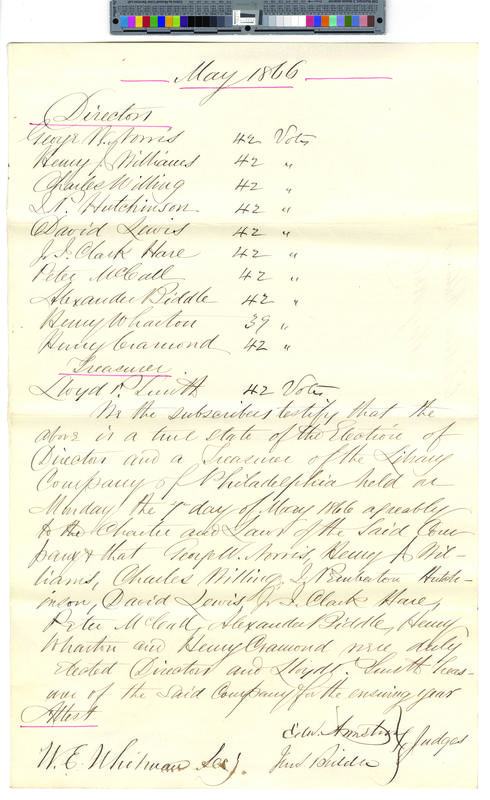 May 1866
Directors
George W. Norris 42 Votes
Henry J. Williams 42 "
Charles Willing 42 "
I. P. Hutchinson 42 "
David Lewis 42 "
J. I. Clark Hare 42 "
Peter McCall 42 "
Alexander Biddle 42 "
Henry Wharton 39 "
Henry Cramond 42 "
Treasurer
Lloyd P. Smith 42 Votes
We the subscribers testify that the
above is a true state of the Election of
Directors and a Treasurer of the Library
Company of Philadelphia held on
Monday the 7th day of May 1866 agreeably
to the Charter and Laws of the Said Com
pany & that George W. Norris, Henry J. Wil-
liams, Charles Willing, I. Pemberton Hutch-
inson, David Lewis, J. I. Clark Hare,
Peter McCall, Alexander Biddle, Henry
Wharton and Henry Cramond were duly
Elected Directors and Lloyd P. Smith Treas-
urer of the Said Company for the ensuing year
Attest
Edw. Armstrong
Judges
W. E. Whitman Secy.
Biddle